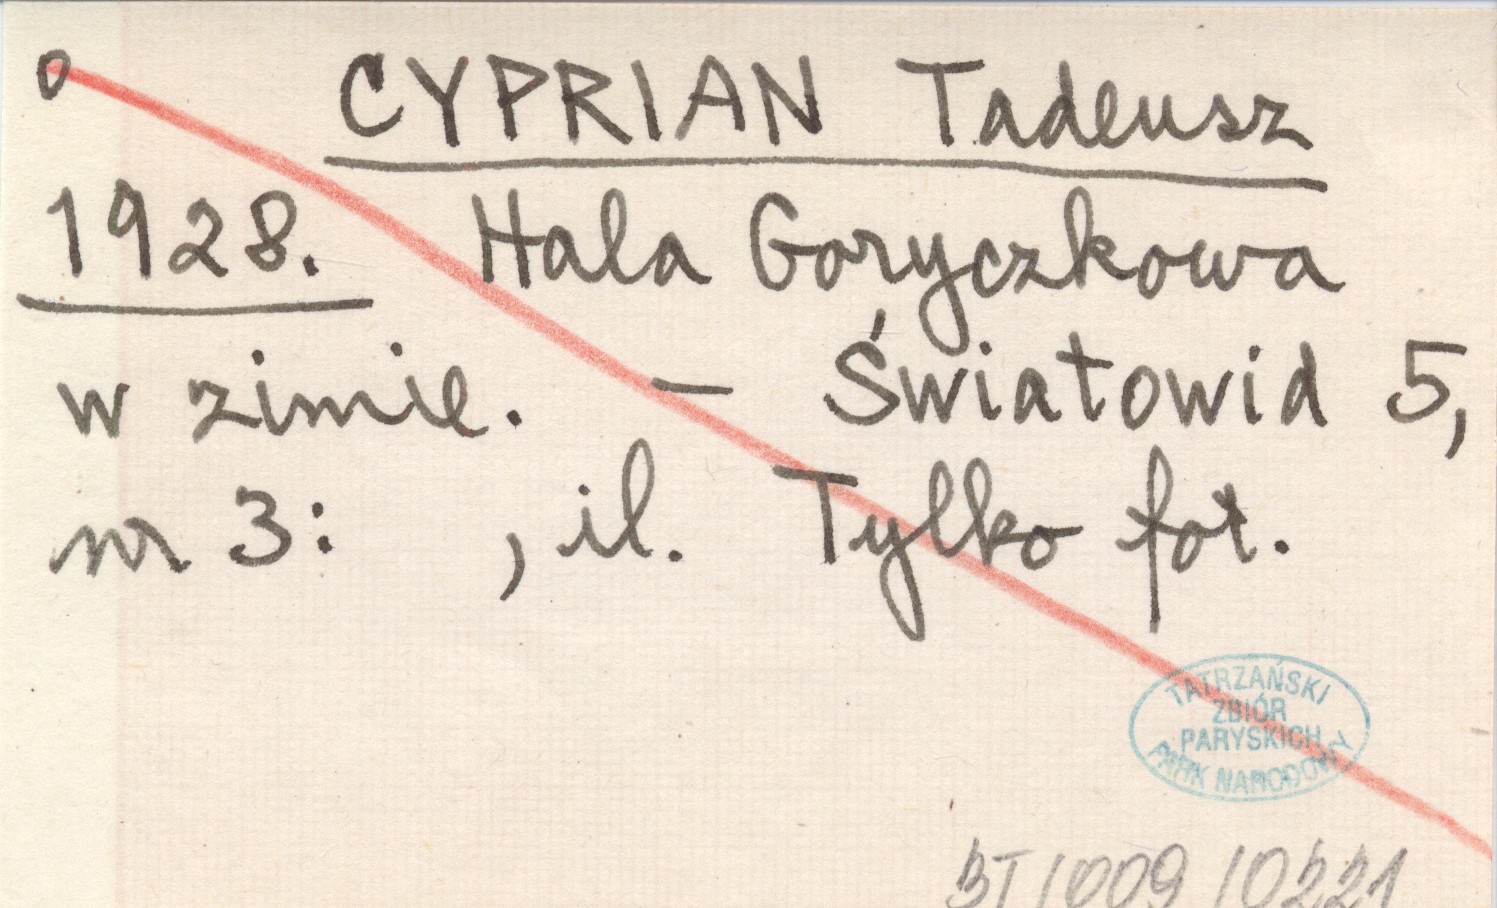 o CYPRIAN Tadeusz
1928. Hala Goryczkowa
w zimie. — Światowid 5,
nr 3: , il. Tylko fot.
TATRZAŃSKI
ZBIÓR
PARYSKICH
PARK NARODOWY
BT/009/0221